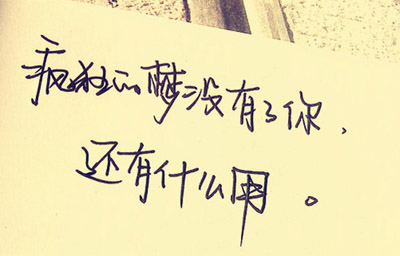 疯狂的梦没有了你，
还有什么用。